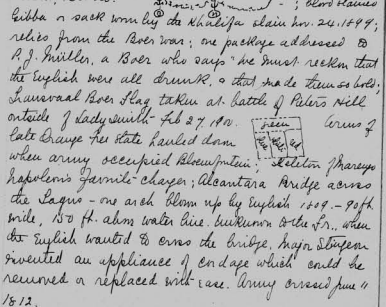 ; blood stained
Gibba or sack worn by the Khalifa slain Nov. 24. 1899;
relics from the Boer War; one package addressed to
P. J. Müller, a Boer who says "We must reckon that
the English were all drunk, & that made them so bold;
Transvaal Boer Flag taken at battle of Peters Hill
outside of Ladysmith Feb 27, 1900. Arms of
late Orange Free State hauled down
when army occupied Bloemfontein; skeleton of Marengo
Napoleon's favorite charger; Alcantara Bridge across
the Tagus - one arch blown up by English 1809. - 90 ft
wide, 150 ft. above water line. Unknown to the Fr., when
the English wanted to cross the bridge, Major Sturgeon
invented an appliance of cordage which could be
removed or replaced with ease. Army crossed June 11
1812.